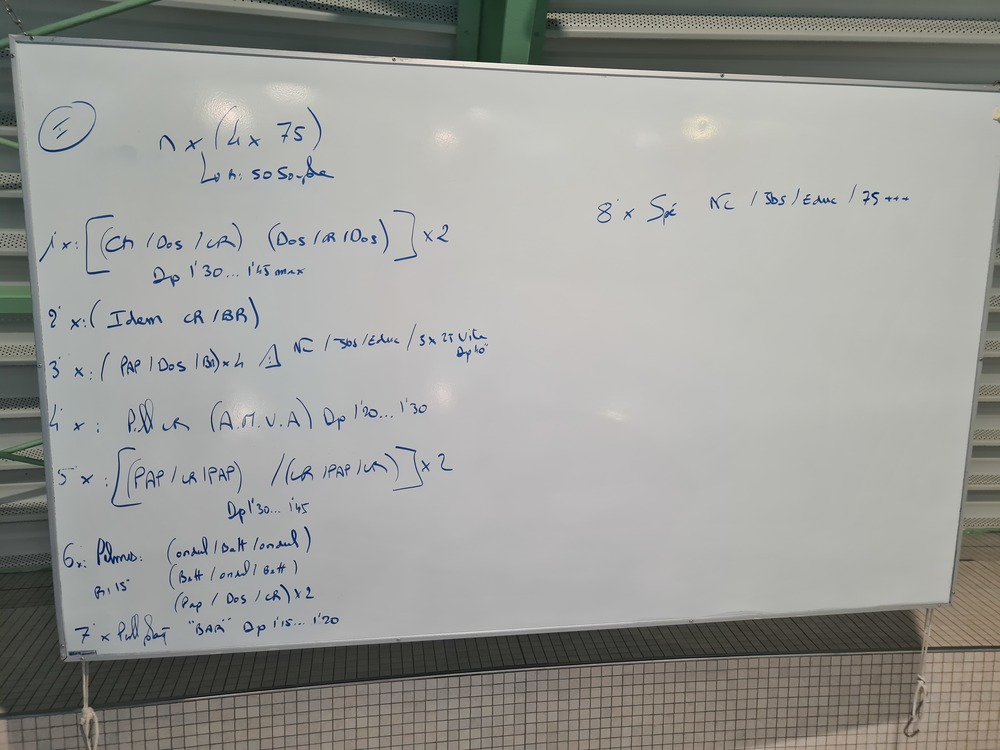 I
n x (4 x 75)
50 Souple
1° x: [(CR / Dos / CR) (Dos / CR / Dos)] x 2
Dp 1'30... 1'45 max
2° x: ( Idem CR / BR)
3° x: ( PAP / Dos / BR) x 4 ⚠ NC / Jbs / Educ / 3 x 25 Vite
Dp 40"
4 x: Pull CR (A.M.V.A) Dp 1'20... 1'30
5° x: [(PAP / CR / PAP) / (CR / PAP / CR)] x 2
Dp 1'30... 1'45
6x: Palmes: (ondul / Batt / ondul)
R: 15" (Batt / ondul / Batt)
(Pap / Dos / CR) x 2
7° x Pull "BAR" Dp 1'15... 1'20
8° x Spé NC / Jbs / Educ / 75 +++